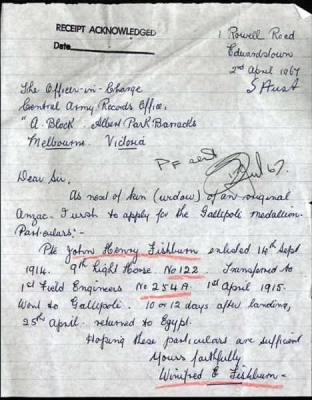 RECEIPT ACKNOWLEDGED
Date
1 Powell Road
Edwardstown
2nd April 1967
S Aust
The Officer-in-Charge
Central Army Records Office,
"A. Block. Albert Park Barracks
Melbourne. Victoria
PF sent
67.
Dear Sir,
As next of kin (widow) of an original
Anzac. I wish to apply for the Gallipoli medallion.
Particulars:-
Pte John Henry Fishburn enlisted 14th Sept
1914. 9th Light Horse No 122 Transfered to
1st Field Engineers No 254A. 1st April 1915.
Went to Gallipoli. 10 or 12 days after landing,
25th April. returned to Egypt.
Hoping these particulars are sufficent
Yours faithfully
Winifred E Fishburn-